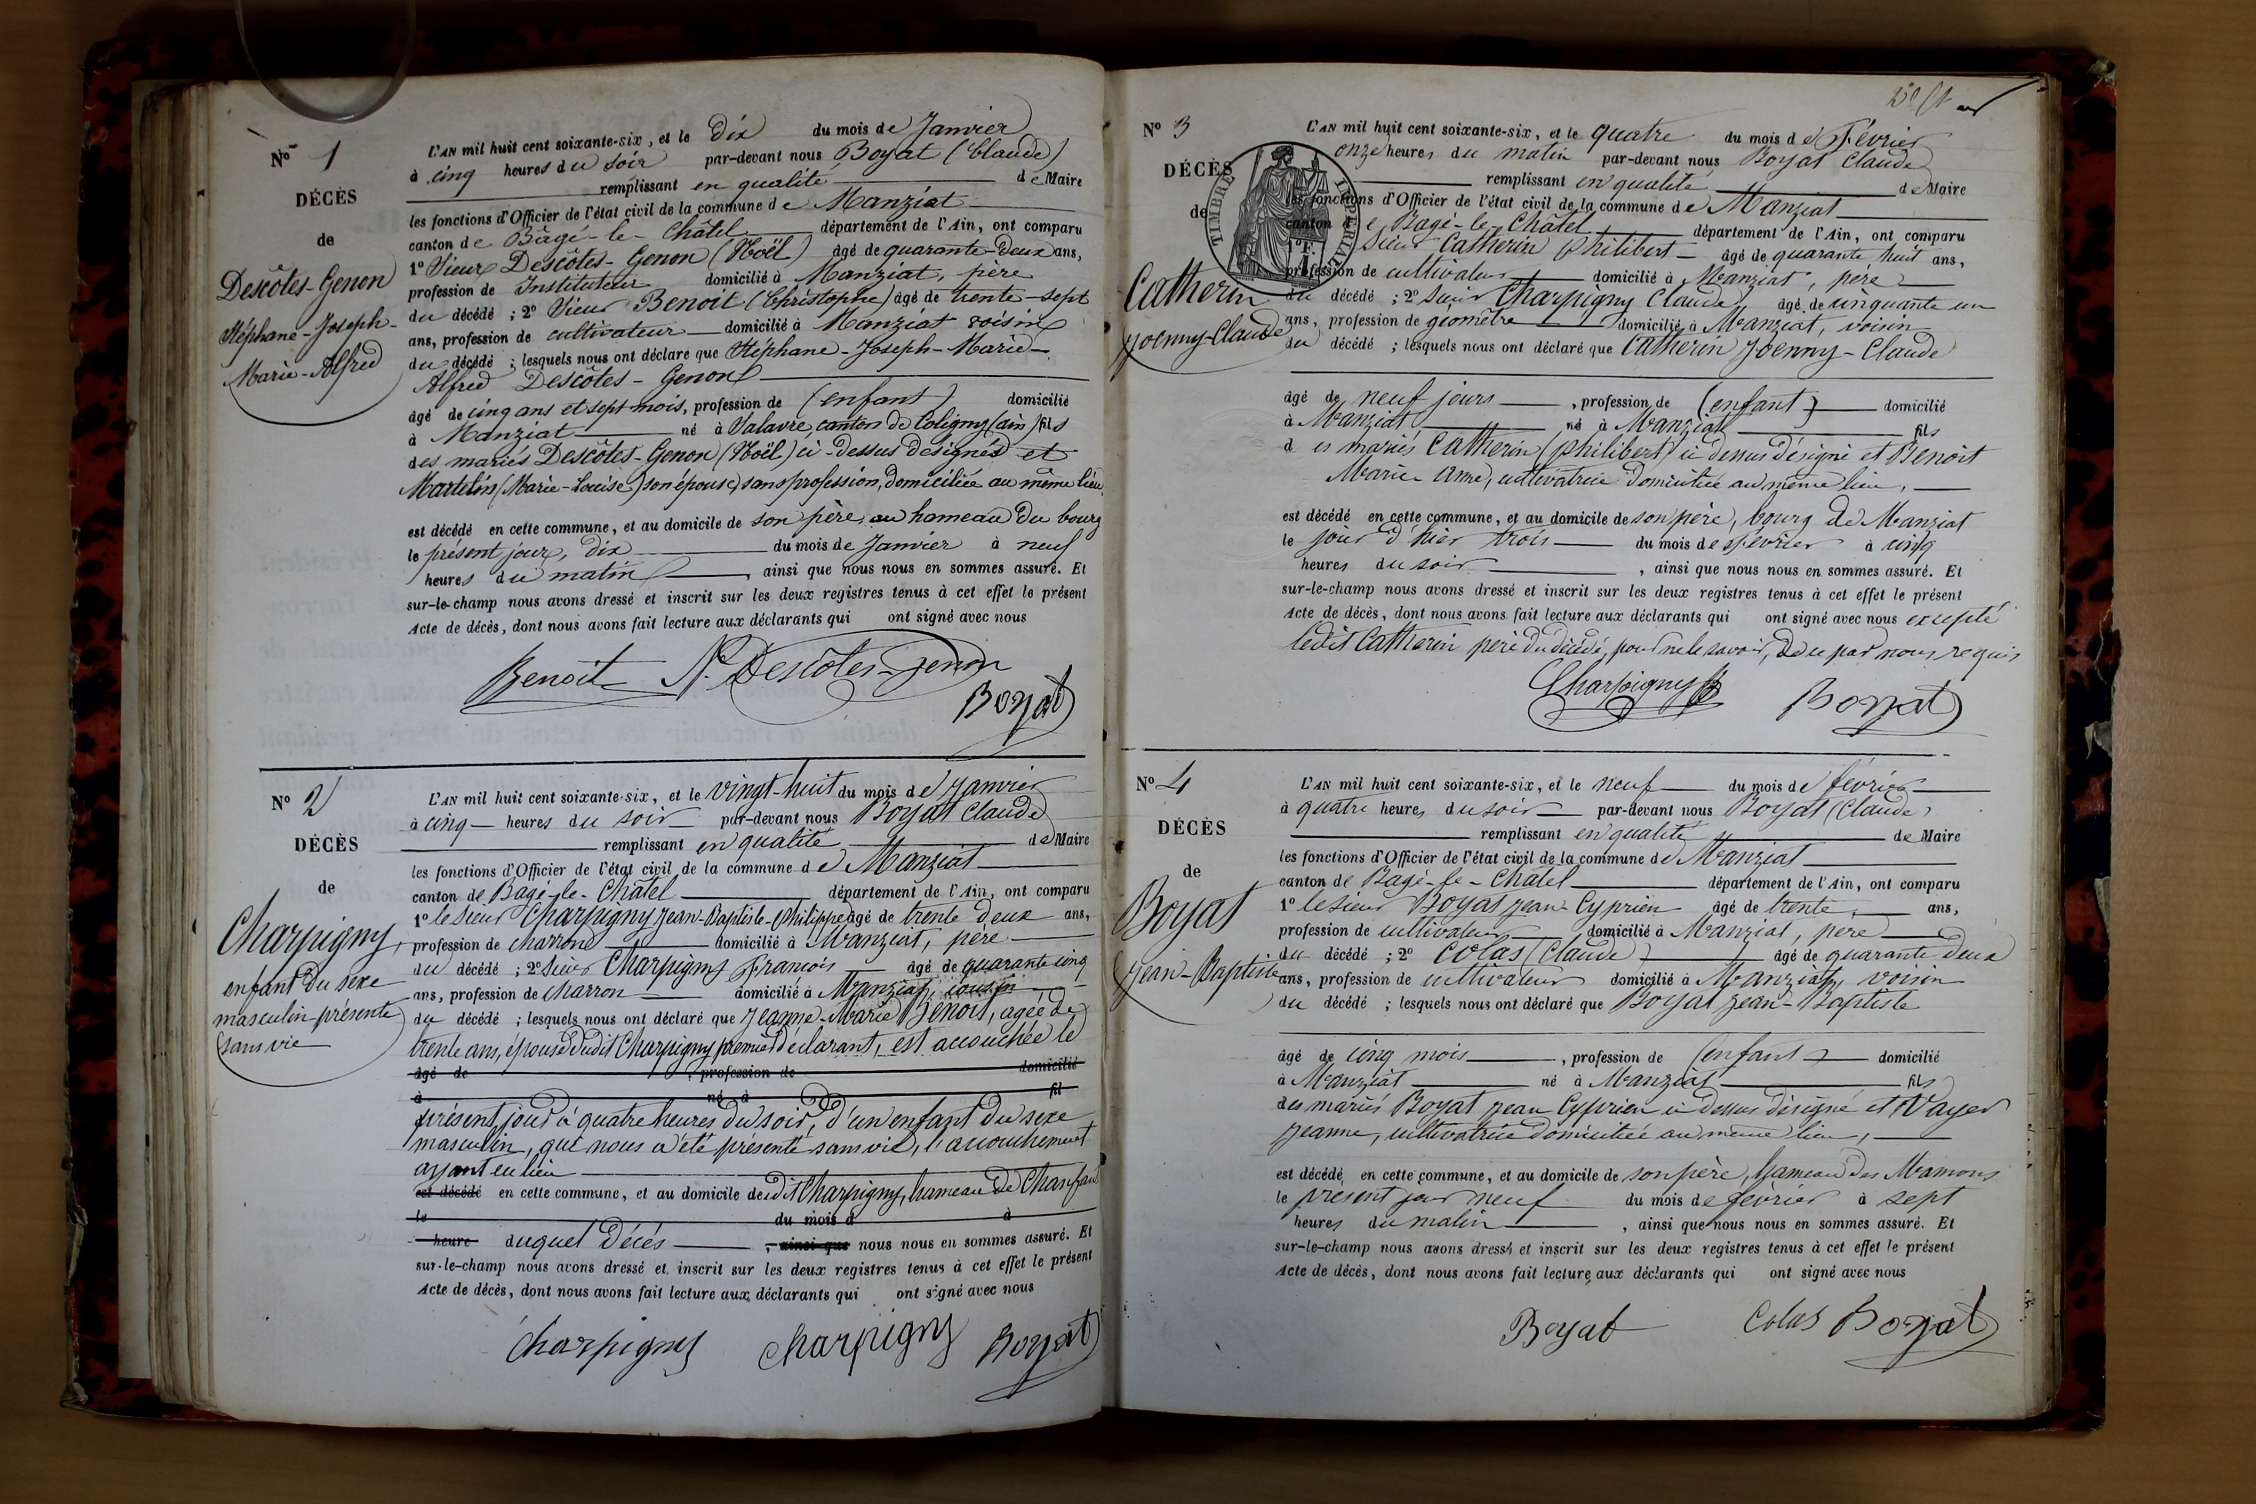 Nº 1
DÉCÈS
de
Descôtes-Genon
Stéphane-Joseph-
Marie-Alfred
L'AN mil huit cent soixante-six, et le dix du mois de Janvier
à cinq heures du soir par-devant nous Boyat (Claude)
remplissant en qualité de Maire
les fonctions d'Officier de l'état civil de la commune de Manziat
canton de Bâgé-le-Châtel département de l'Ain, ont comparu
1º Sieur Descôtes-Genon (Noël) âgé de quarante-deux ans,
profession de Instituteur domicilié à Manziat, père
du décédé ; 2º Sieur Benoit (Christophe) âgé de trente-sept
ans, profession de cultivateur domicilié à Manziat voisin
du décédé ; lesquels nous ont déclaré que Stéphane-Joseph-Marie-
Alfred Descôtes-Genon
âgé de cinq ans et sept mois, profession de (enfant) domicilié
à Manziat né à Salavre, canton de Coligny (ain) fils
des mariés Descôtes-Genon (Noël) ci-dessus désigné et
Martelin (Marie-Louise) son épouse, sans profession, domiciliée au même lieu
est décédé en cette commune, et au domicile de son père, au hameau du bourg
le présent jour, dix du mois de Janvier à neuf
heures du matin, ainsi que nous nous en sommes assuré. Et
sur-le-champ nous avons dressé et inscrit sur les deux registres tenus à cet effet le présent
Acte de décès, dont nous avons fait lecture aux déclarants qui ont signé avec nous
Benoit N. Descôtes-Genon
Boyat
Nº 2
DÉCÈS
de
Charpigny,
enfant du sexe
masculin présenté
sans vie
L'AN mil huit cent soixante-six, et le vingt-huit du mois de Janvier
à cinq heures du soir par-devant nous Boyat Claude
remplissant en qualité de Maire
les fonctions d'Officier de l'état civil de la commune de Manziat
canton de Bagé-le-Châtel département de l'Ain, ont comparu
1º le sieur Charpigny Jean-Baptiste-Philippe âgé de trente deux ans,
profession de charron domicilié à Manziat, père
du décédé ; 2º Sieur Charpigny François âgé de quarante cinq
ans, profession de charron domicilié à Manziat, cousin
du décédé ; lesquels nous ont déclaré que Jeanne-Marie Benoit, agée de
trente ans, épouse dudit Charpigny premier déclarant, est accouchée le
âgé de , profession de domicilié
à né à fil
présent jour à quatre heures du soir, d'un enfant du sexe
masculin, qui nous a été présenté sans vie, l'accouchement
ayant eu lieu
est décédé en cette commune, et au domicile dudit Charpigny, hameau de Chanfan
le du mois d à
heure duquel Décés , ainsi que nous nous en sommes assuré. Et
sur-le-champ nous avons dressé et inscrit sur les deux registres tenus à cet effet le présent
Acte de décès, dont nous avons fait lecture aux déclarants qui ont signé avec nous
Charpigny Charpigny Boyat
Nº 3
DÉCÈS
de
Catherin
Joenny-Claude
TIMBRE IMPÉRIAL
L'AN mil huit cent soixante-six, et le quatre du mois de Février
onze heures du matin par-devant nous Boyat Claude
remplissant en qualité de Maire
les fonctions d'Officier de l'état civil de la commune de Manziat
canton de Bagé-le-Châtel département de l'Ain, ont comparu
Sieur Catherin Philibert âgé de quarante huit ans,
profession de cultivateur domicilié à Manziat, père
du décédé ; 2º Sieur Charpigny Claude âgé de cinquante un
ans, profession de géomètre domicilié à Manziat, voisin
du décédé ; lesquels nous ont déclaré que Catherin Joenny-Claude
âgé de neuf jours , profession de (enfant) domicilié
à Manziat né à Manziat fils
des mariés Catherin (Philibert) ci dessus désigné et Benoit
Marie Anne, cultivatrice domiciliée au même lieu,
est décédé en cette commune, et au domicile de son père, bourg de Manziat
le jour d'hier trois du mois de février à cinq
heures du soir , ainsi que nous nous en sommes assuré. Et
sur-le-champ nous avons dressé et inscrit sur les deux registres tenus à cet effet le présent
Acte de décès, dont nous avons fait lecture aux déclarants qui ont signé avec nous excepté
ledit Catherin père du décédé, pour ne le savoir, de ce par nous requis
Charpigny Boyat
Nº 4
DÉCÈS
de
Boyat
Jean-Baptiste
L'AN mil huit cent soixante-six, et le neuf du mois de février
à quatre heures du soir par-devant nous Boyat (Claude)
remplissant en qualité de Maire
les fonctions d'Officier de l'état civil de la commune de Manziat
canton de Bagé-le-Châtel département de l'Ain, ont comparu
1º le sieur Boyat Jean Cyprien âgé de trente ans,
profession de cultivateur domicilié à Manziat, père
du décédé ; 2º Colas (Claude) âgé de quarante deux
ans, profession de cultivateur domicilié à Manziat, voisin
du décédé ; lesquels nous ont déclaré que Boyat Jean-Baptiste
âgé de cinq mois , profession de (enfant) domicilié
à Manziat né à Manziat fils
des mariés Boyat Jean Cyprien ci dessus désigné et Vayer
Jeanne, cultivatrice domiciliée au même lieu,
est décédé en cette commune, et au domicile de son père, hameau des Mamons
le présent jour neuf du mois de février à sept
heures du matin , ainsi que nous nous en sommes assuré. Et
sur-le-champ nous avons dressé et inscrit sur les deux registres tenus à cet effet le présent
Acte de décès, dont nous avons fait lecture aux déclarants qui ont signé avec nous
Boyat Colas Boyat